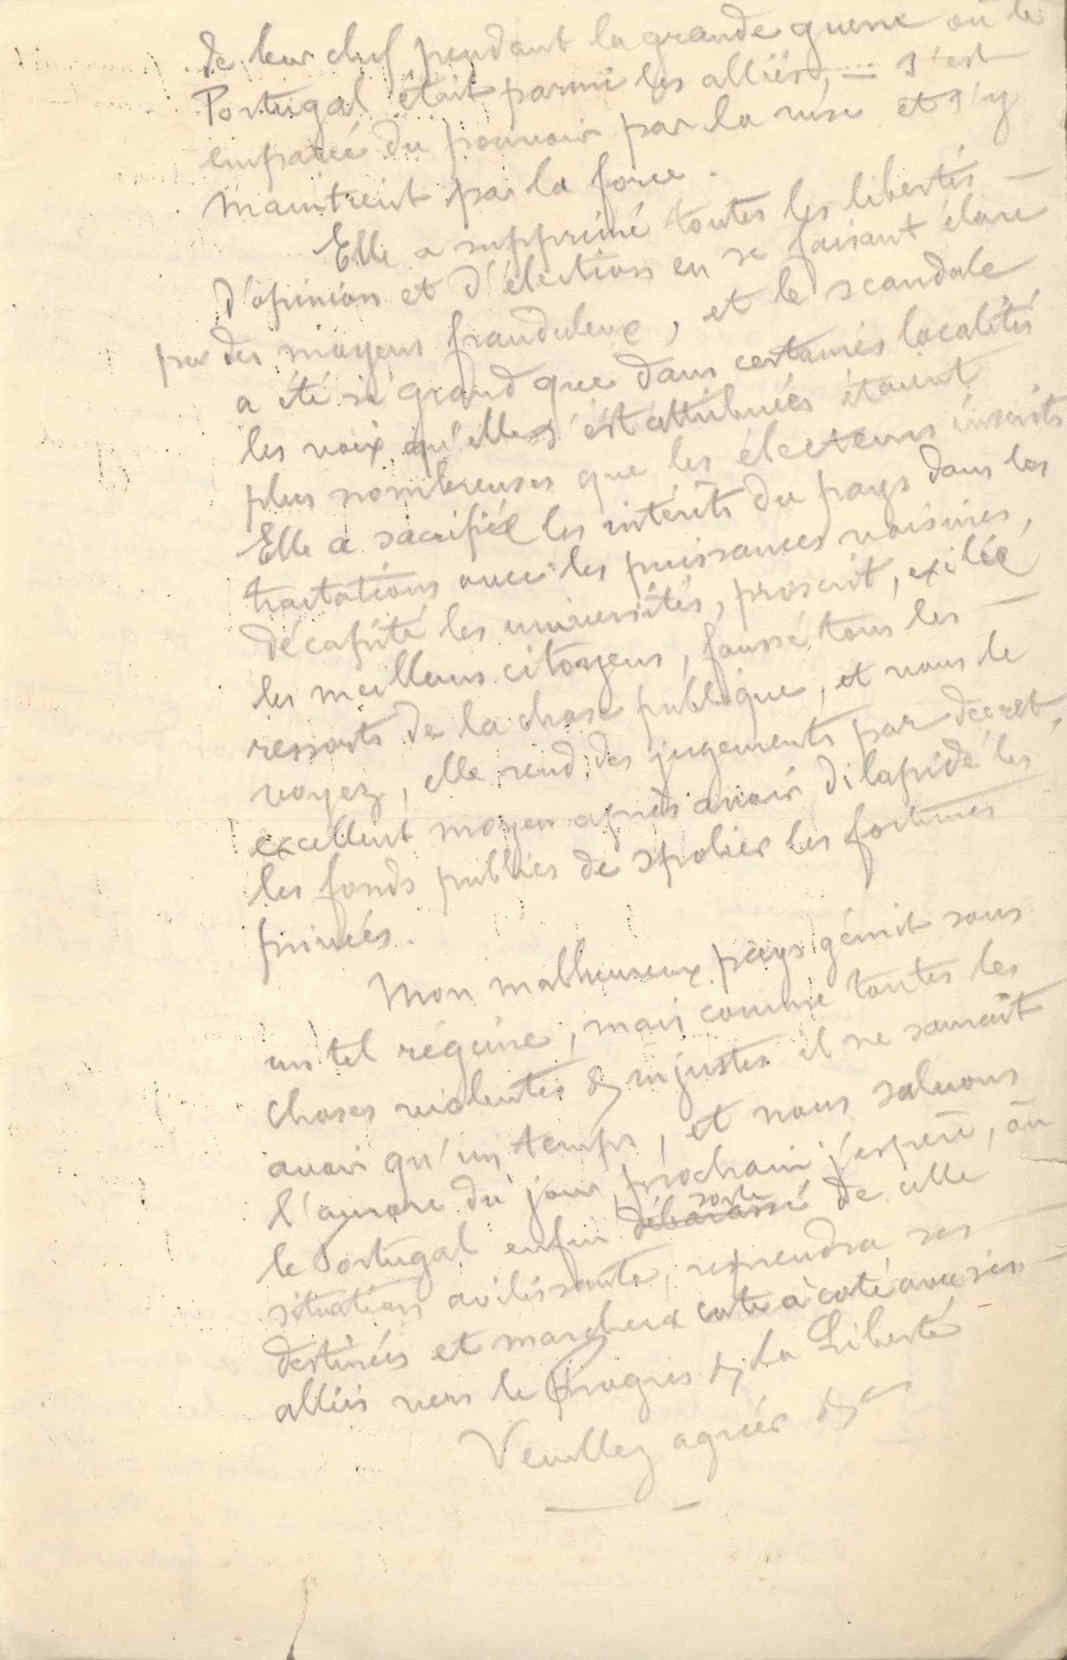 de leur chef pendant la grande guerre où le
Portugal était parmi les alliés, — s'est
emparée du pouvoir par la ruse et s'y
maintient par la force.
Elle a supprimé toutes les libertés —
d'opinion et d'élection en se faisant élire
par des moyens frauduleux, et le scandale
a été si grand que dans certaines localités
les voix qu'elle s'est attribuées étaient
plus nombreuses que les électeurs inscrits
Elle a sacrifié les intérêts du pays dans les
tractations avec les puissances voisines,
décapité les universités, proscrit, exilé
les meilleurs citoyens, faussé tous les —
ressorts de la chose publique, et vous le
voyez, elle rend des jugements par décret,
excellent moyen après avoir dilapidé les
les fonds publics de spolier les fortunes
privées.
Mon malheureux pays gémit sous
un tel régime, mais comme toutes les
choses violentes & injustes il ne saurait
avoir qu'un temps, et nous saluons
l'aurore du jour prochain j'espère, où
le Portugal enfin débarassé sorti de cette
situation avilissante, reprendra ses —
destinées et marchera cote à cote avec ses —
alliés vers le Progrès & la Liberté
Veuillez agréer &